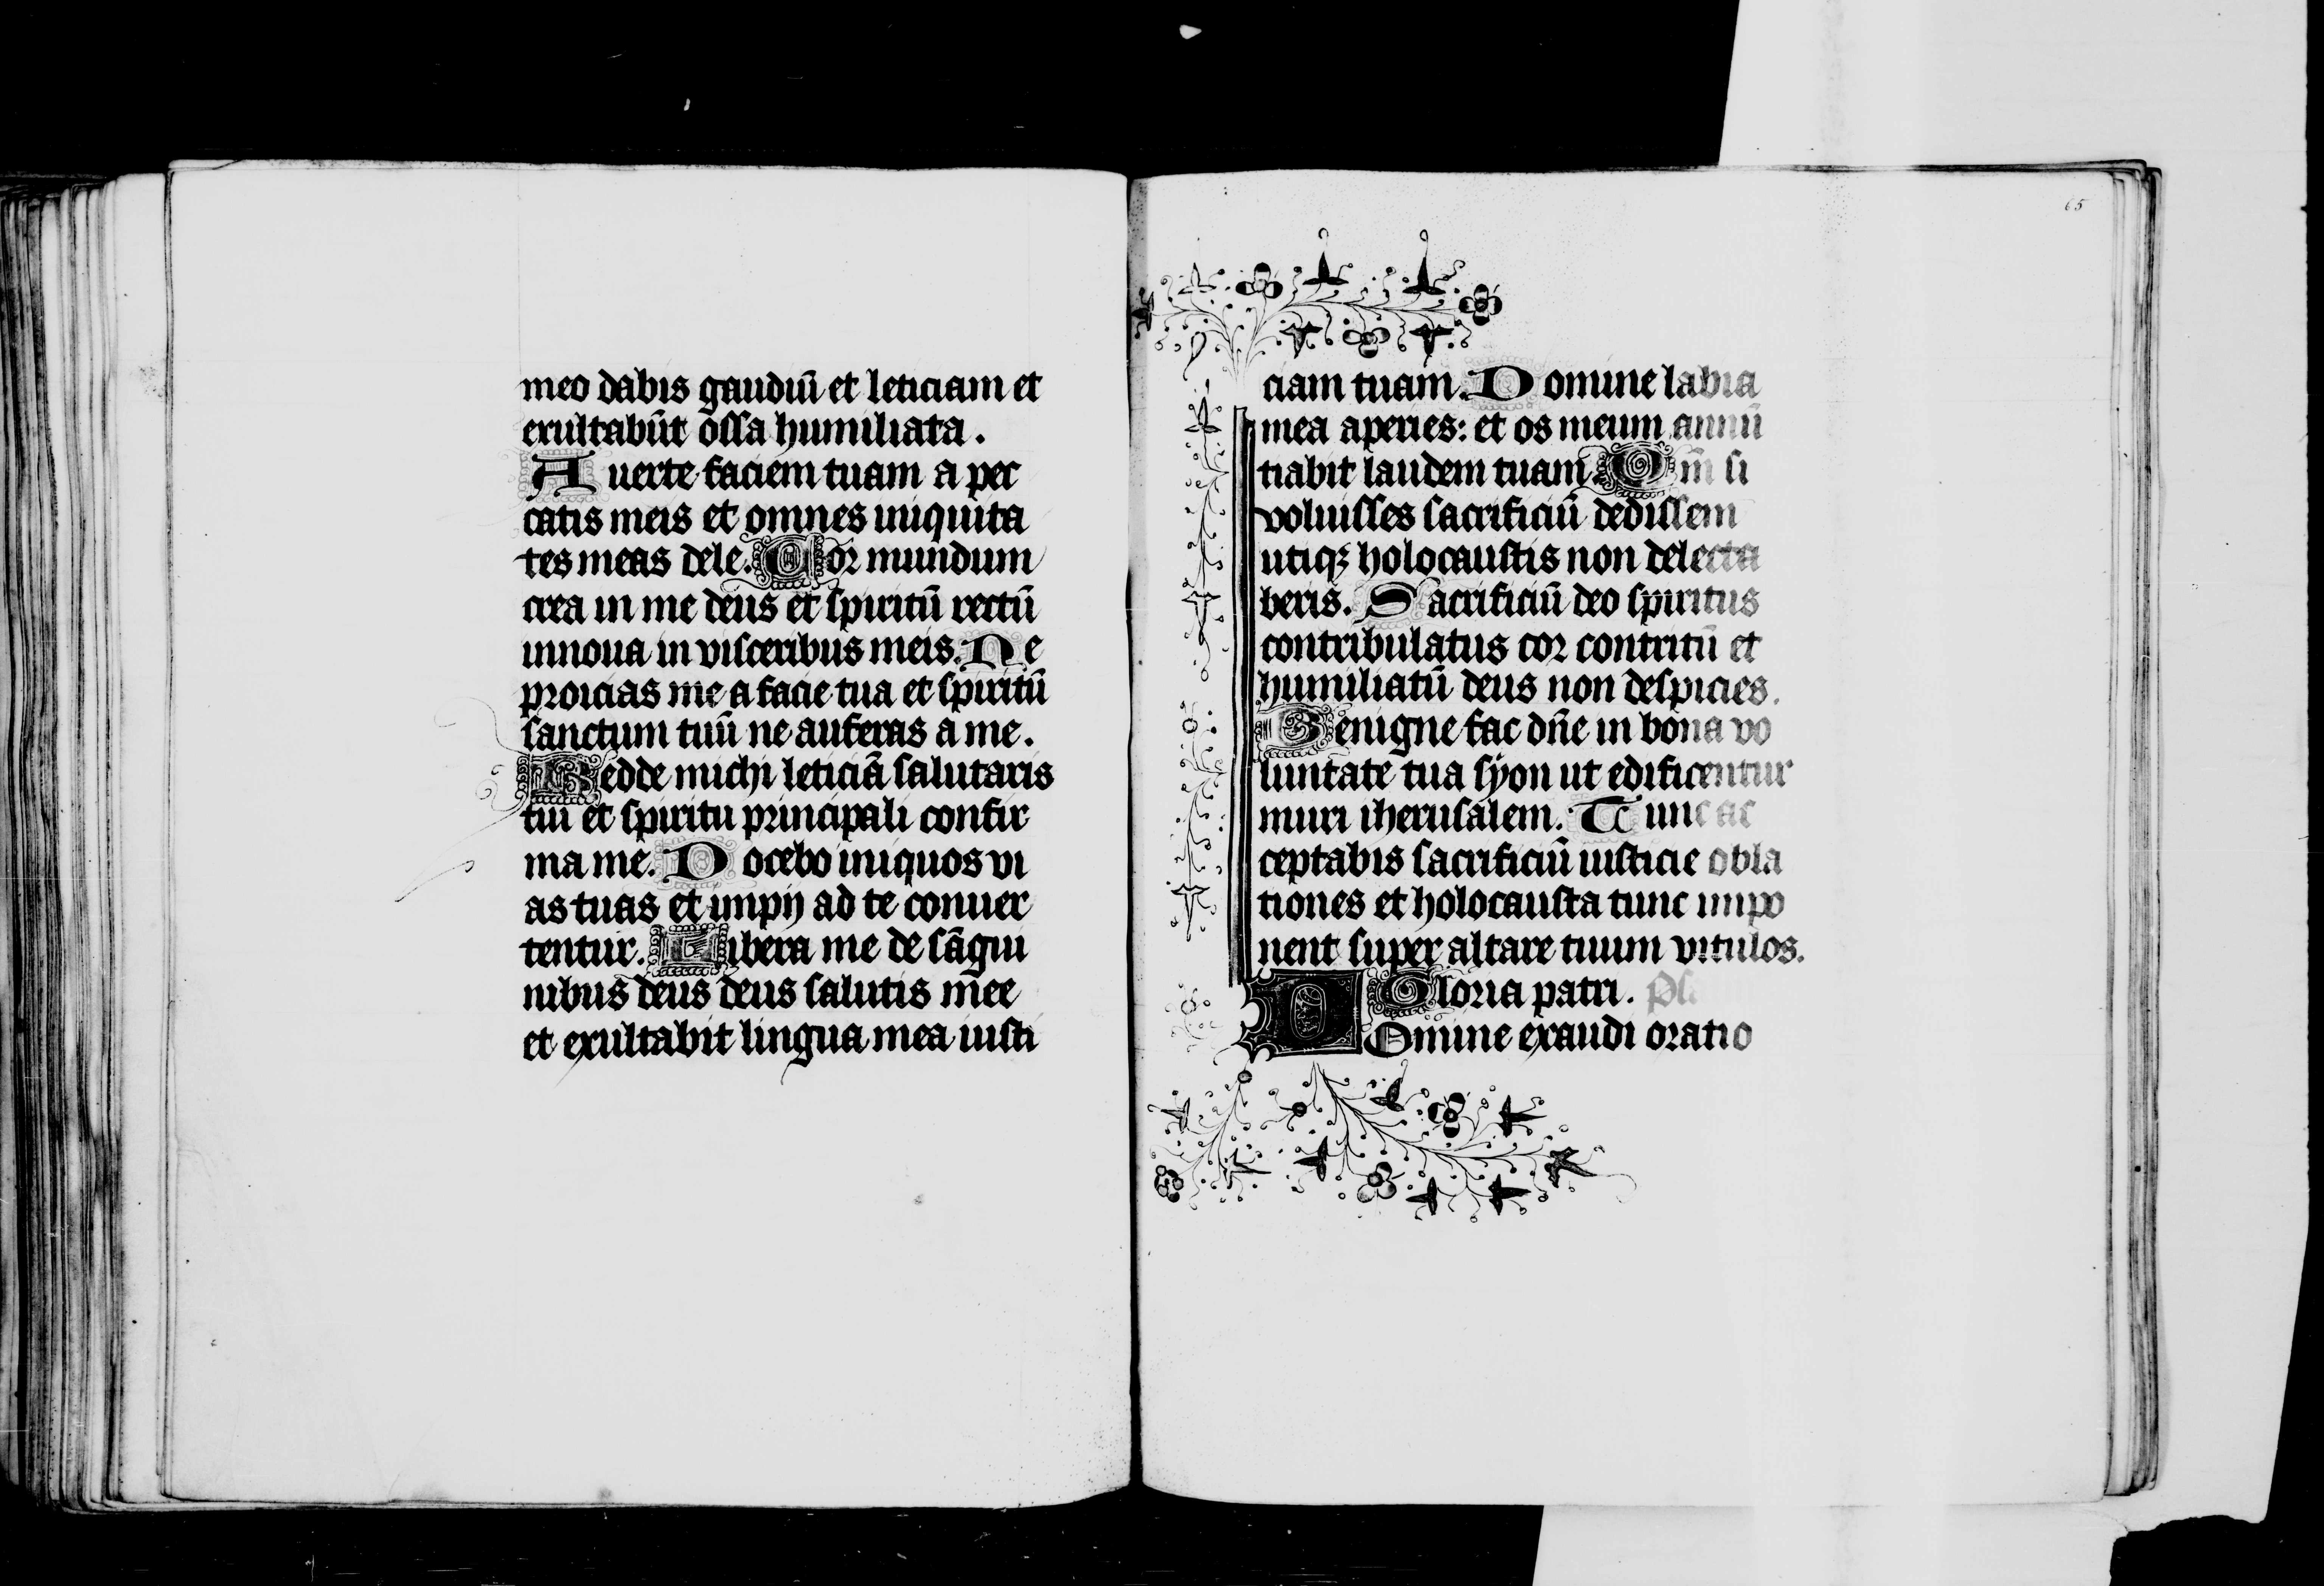 meo dabis gaudiū et leticiam et
exultabūt ossa humiliata.
Auerte faciem tuam a pec
catis meis et omnes iniquita
tes meas dele. Cor mundum
crea in me deus et spiritū rectū
innoua in visceribus meis. Ne
proicias me a facie tua et spiritū
sanctum tuū ne auferas a me.
Redde michi leticiā salutaris
tui et spiritu principali confir
ma me. Docebo iniquos vi
as tuas et impij ad te conuer
tentur. Libera me de sāgui
nibus deus deus salutis mee
et exultabit lingua mea iusti
65
ciam tuam. Domine labia
mea aperies: et os meum annū
tiabit laudem tuam. Qm̄ si
voluisses sacrificiū dedissem
utiqꝫ holocaustis non delecta
beris. Sacrificiū deo spiritus
contribulatus cor contritū et
humiliatū deus non despicies.
Benigne fac dn̄e in bona vo
luntate tua syon ut edificentur
muri iherusalem. Tunc ac
ceptabis sacrificiū iusticie obla
tiones et holocausta tunc impo
nent super altare tuum vitulos.
Gloria patri.
Domine exaudi oratio